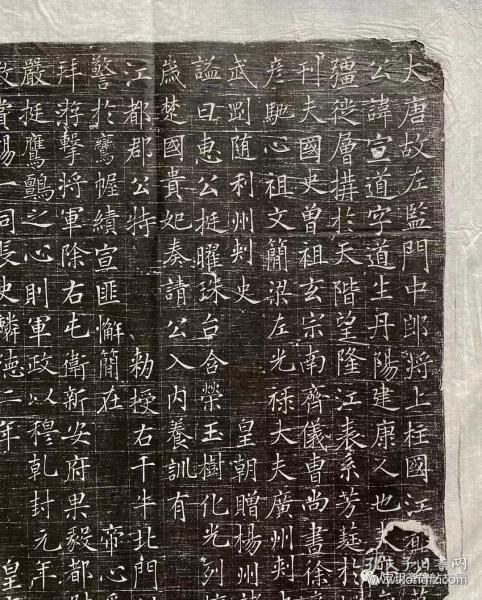 大唐故左監門中郎將上柱國江都
公諱宣道字道生丹陽建康人也
層搆於天階望隆江表系芳莚於
刊夫國史曾祖玄宗南齊儀曹尚書徐
彦馳心祖文簡梁左光祿大夫廣州刾
武随利州刾史 皇朝贈楊州
謚曰惠公挺曜珠台含榮玉樹化光列
嵗楚國貴妃奏請公入內養訓有
江都郡公特 勑授右千牛北門
警於鸞幄績宣匪懈簡在 帝心
拜游擊將軍除右屯衛新安府果毅都
嚴挺鷹鸇之心則軍政以穆乾封元年
賞賜一同長史麟德二年 皇
孔夫子旧书网
www.kongfz.com